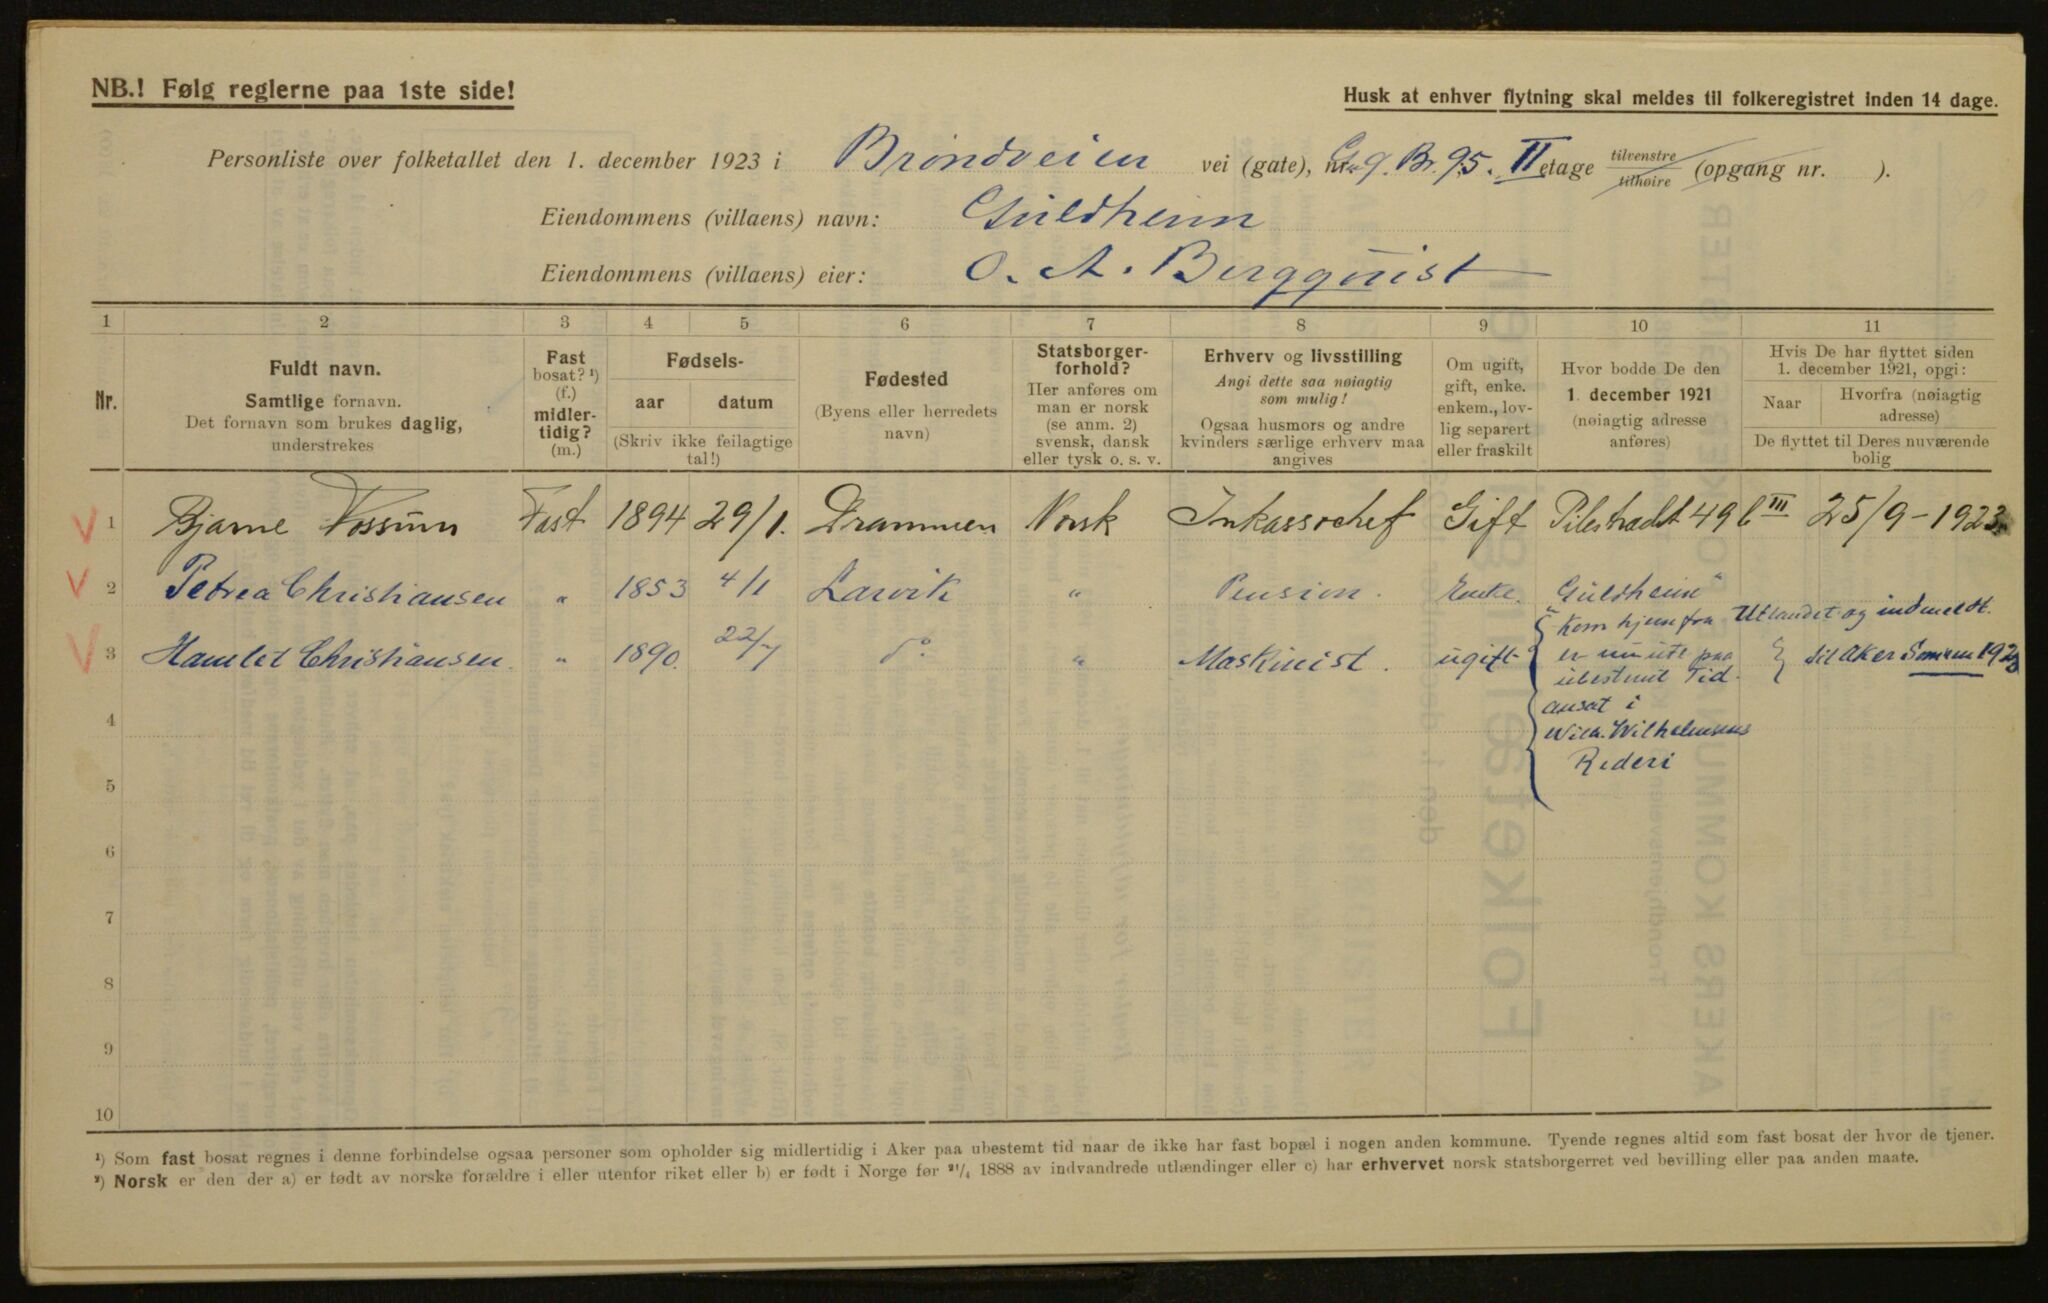 NB.! Følg reglerne paa 1ste side!
Husk at enhver flytning skal meldes til folkeregistret inden 14 dage.
Personliste over folketallet den 1. december 1923 i Brøndveien vei (gate), nr. G. 9. Br. 95. II etage tilvenstre tilhøire (opgang nr. ).
Eiendommens (villaens) navn: Guldheim
Eiendommens (villaens) eier: O. A. Bergquist
1 2 3 4 5 6 7 8 9 10 11
Nr.
Fuldt navn.
Samtlige fornavn.
Det fornavn som brukes daglig,
understrekes
Fast
bosat? ¹)
(f.)
midler-
tidig?
(m.)
Fødsels-
aar datum
(Skriv ikke feilagtige
tal!)
Fødested
(Byens eller herredets
navn)
Statsborger-
forhold?
Her anføres om
man er norsk
(se anm. 2)
svensk, dansk
eller tysk o. s. v.
Erhverv og livsstilling
Angi dette saa nøiagtig
som mulig!
Ogsaa husmors og andre
kvinders særlige erhverv maa
angives
Om ugift,
gift, enke.
enkem., lov-
lig separert
eller fraskilt
Hvor bodde De den
1. december 1921
(nøiagtig adresse
anføres)
Hvis De har flyttet siden
1. december 1921, opgi:
Naar
Hvorfra (nøiagtig
adresse)
De flyttet til Deres nuværende
bolig
1 Bjarne Vossum Fast 1894 29/1. Drammen Norsk Inkassochef Gift Pilestrædt 49 b III 25/9-1923
2 Petrea Christiansen " 1853 4/1 Larvik " Pension. Enke. "Guldheim"
3 Hamlet Christiansen. " 1890. 22/7 do " Maskinist. ugift
Kom hjem fra Utlandet og indmeldt.
er nu ute paa til Aker Sommren 1923
ubestemt Tid.
ansat i
Wilh. Wilhelmsens
Rederi
4
5
6
7
8
9
10
¹) Som fast bosat regnes i denne forbindelse ogsaa personer som opholder sig midlertidig i Aker paa ubestemt tid naar de ikke har fast bopæl i nogen anden kommune. Tyende regnes altid som fast bosat der hvor de tjener.
²) Norsk er den der a) er født av norske forældre i eller utenfor riket eller b) er født i Norge før ²¹/₄ 1888 av indvandrede utlændinger eller c) har erhvervet norsk statsborgerret ved bevilling eller paa anden maate.